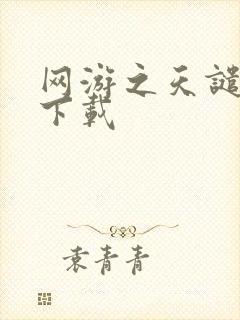 网游之天谴
下载
袁青青